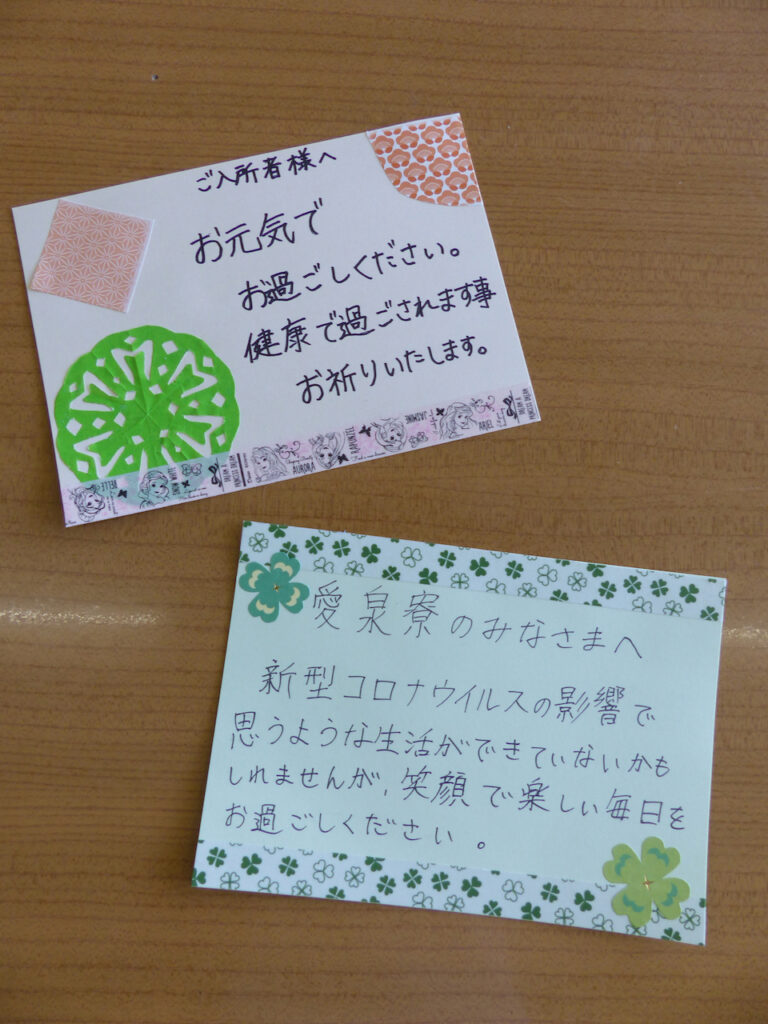 ご入所者様へ
お元気で
お過ごしください。
健康で過ごされます事
お祈りいたします。
BELLE
SNOW WHITE
DREAM A
PRINCESS DREAM
AURORA
RAPUNZEL
JASMINE
ARIEL
DREAM A
PRINCESS DREAM
愛泉寮のみなさまへ
新型コロナウイルスの影響で
思うような生活ができていないかも
しれませんが、笑顔で楽しい毎日を
お過ごしください。